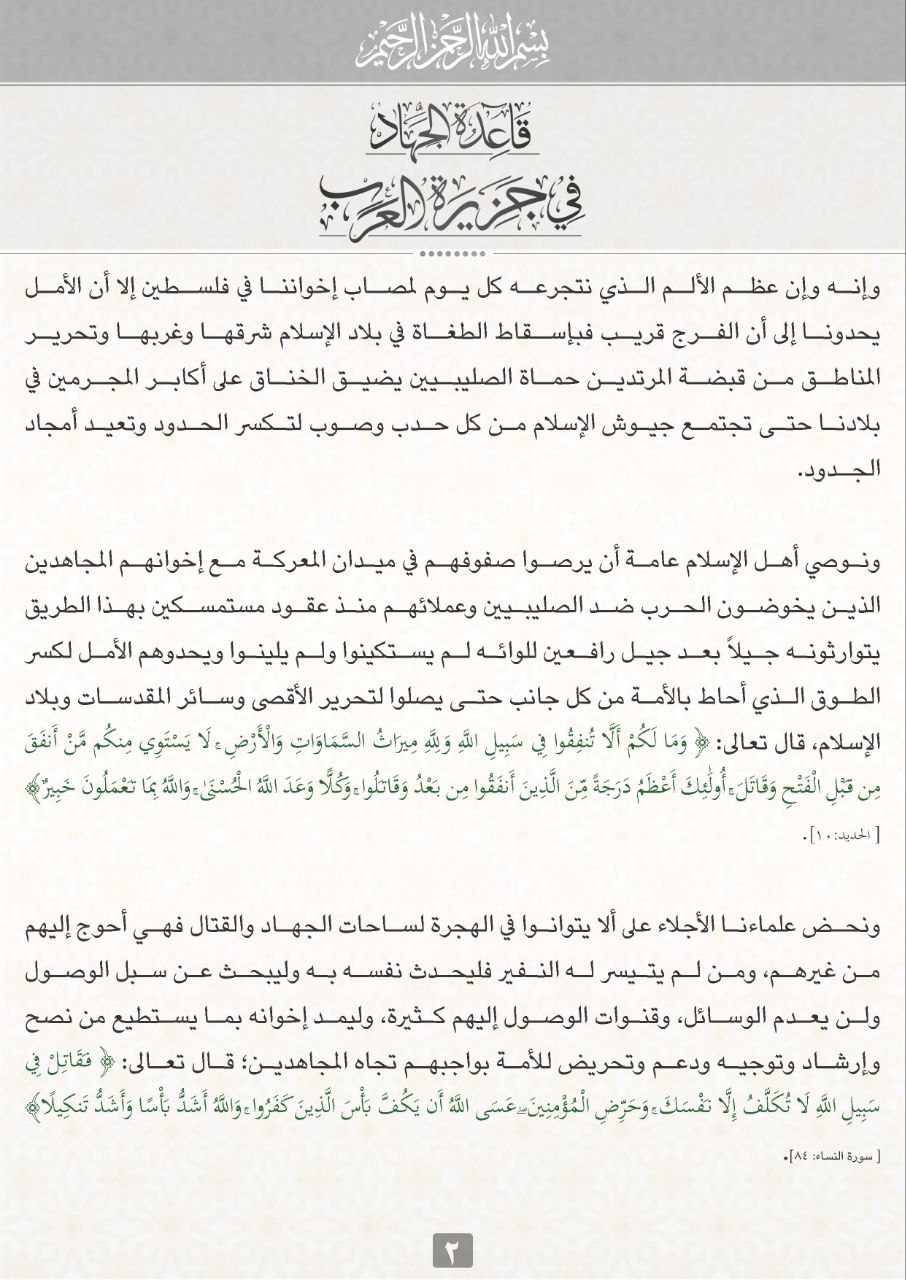 بسم الله الرحمن الرحيم
قاعدة الجهاد
في جزيرة العرب
وإنه وإن عظم الألم الذي نتجرعه كل يوم لمصاب إخواننا في فلسطين إلا أن الأمل
يحدونا إلى أن الفرج قريب فبإسقاط الطغاة في بلاد الإسلام شرقها وغربها وتحرير
المناطق من قبضة المرتدين حماة الصليبيين يضيق الخناق على أكابر المجرمين في
بلادنا حتى تجتمع جيوش الإسلام من كل حدب وصوب لتكسر الحدود وتعيد أمجاد
الجدود.
ونوصي أهل الإسلام عامة أن يرصوا صفوفهم في ميدان المعركة مع إخوانهم المجاهدين
الذين يخوضون الحرب ضد الصليبيين وعملائهم منذ عقود مستمسكين بهذا الطريق
يتوارثونه جيلاً بعد جيل رافعين للوائه لم يستكينوا ولم يلينوا ويحدوهم الأمل لكسر
الطوق الذي أحاط بالأمة من كل جانب حتى يصلوا لتحرير الأقصى وسائر المقدسات وبلاد
الإسلام، قال تعالى: ﴿ وَمَا لَكُمْ أَلَّا تُنفِقُوا فِي سَبِيلِ اللَّهِ وَلِلَّهِ مِيرَاثُ السَّمَاوَاتِ وَالْأَرْضِ ۚ لَا يَسْتَوِي مِنكُم مَّنْ أَنفَقَ
مِن قَبْلِ الْفَتْحِ وَقَاتَلَ ۚ أُولَٰئِكَ أَعْظَمُ دَرَجَةً مِّنَ الَّذِينَ أَنفَقُوا مِن بَعْدُ وَقَاتَلُوا ۚ وَكُلًّا وَعَدَ اللَّهُ الْحُسْنَىٰ ۚ وَاللَّهُ بِمَا تَعْمَلُونَ خَبِيرٌ﴾
[ الحديد: ١٠].
ونحض علماءنا الأجلاء على ألا يتوانوا في الهجرة لساحات الجهاد والقتال فهي أحوج إليهم
من غيرهم، ومن لم يتيسر له النفير فليحدث نفسه به وليبحث عن سبل الوصول
ولن يعدم الوسائل، وقنوات الوصول إليهم كثيرة، وليمد إخوانه بما يستطيع من نصح
وإرشاد وتوجيه ودعم وتحريض للأمة بواجبهم تجاه المجاهدين؛ قال تعالى: ﴿ فَقَاتِلْ فِي
سَبِيلِ اللَّهِ لَا تُكَلَّفُ إِلَّا نَفْسَكَ ۚ وَحَرِّضِ الْمُؤْمِنِينَ ۖ عَسَى اللَّهُ أَن يَكُفَّ بَأْسَ الَّذِينَ كَفَرُوا ۚ وَاللَّهُ أَشَدُّ بَأْسًا وَأَشَدُّ تَنكِيلًا﴾
[ سورة النساء: ٨٤].
٢